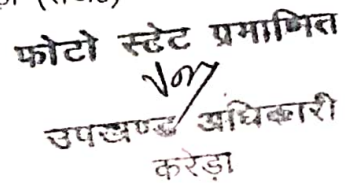 फोटो स्टेट प्रमाणित
उपखण्ड अधिकारी
करेड़ा